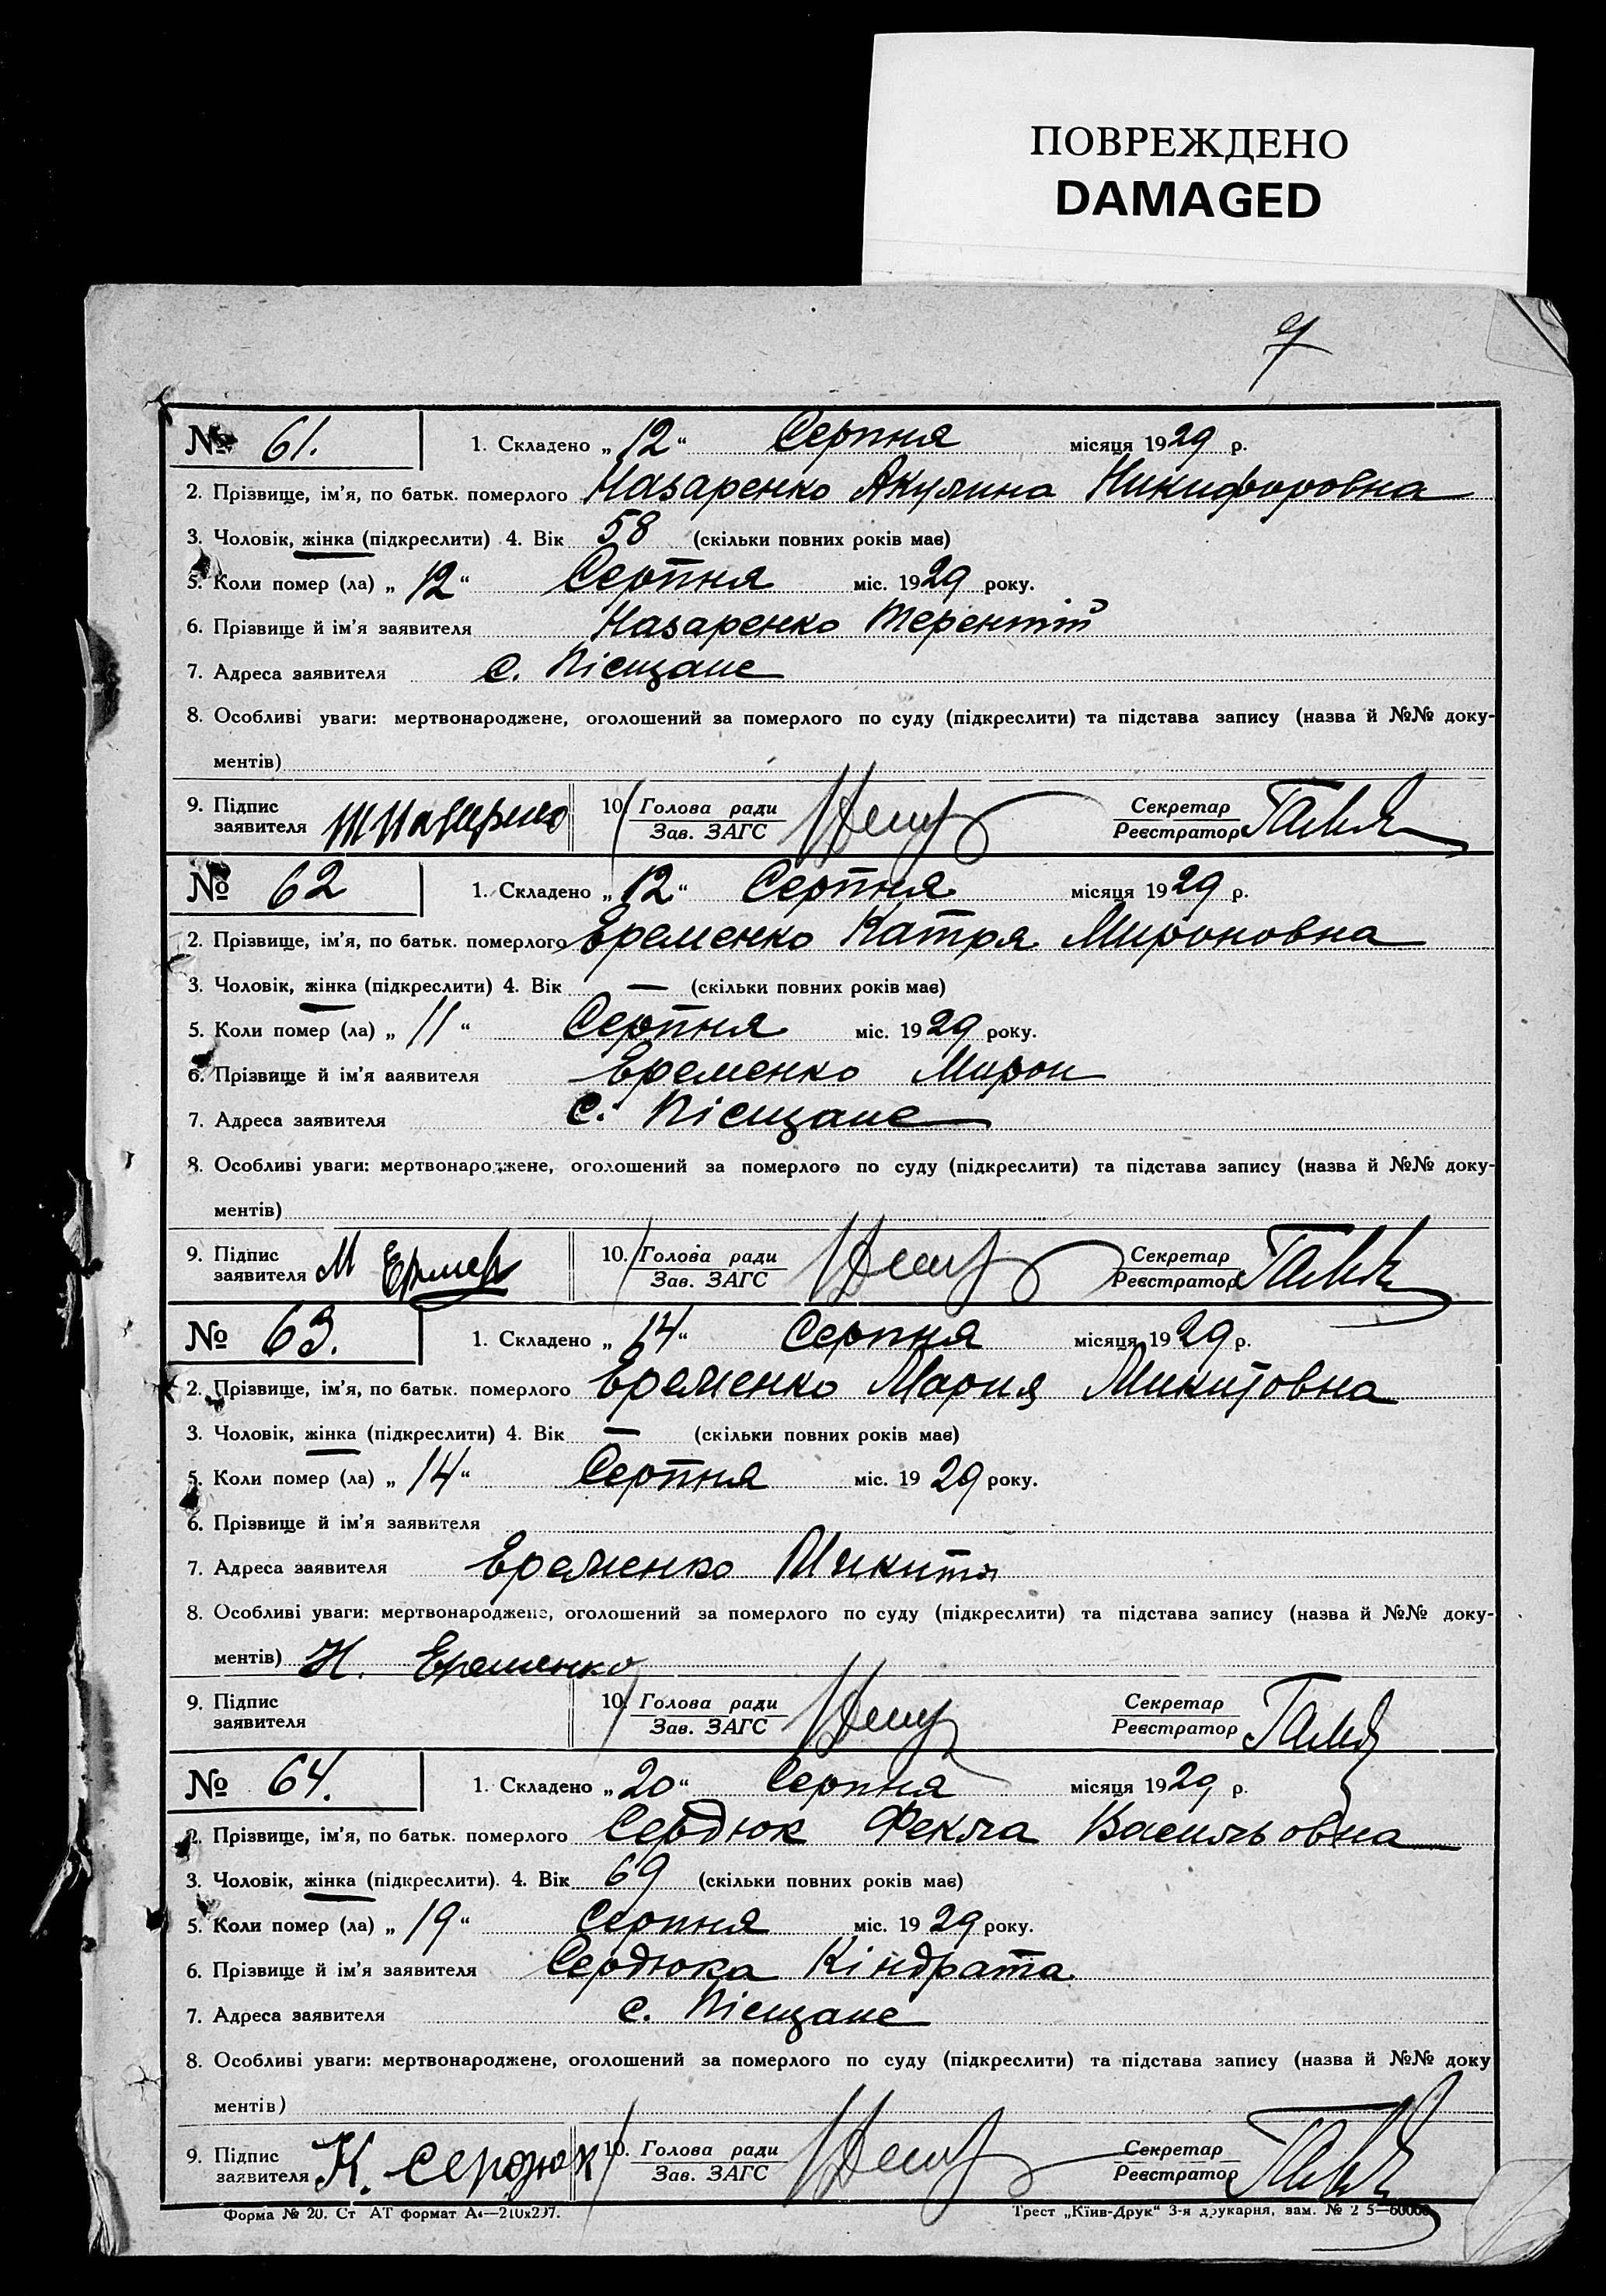 ПОВРЕЖДЕНО
DAMAGED
№ 61. 1. Складено „12“ Серпня місяця 1929 р.
2. Прізвище, ім’я, по батьк. померлого Назаренко Акулина Никифоровна
3. Чоловік, жінка (підкреслити) 4. Вік 58 (скільки повних років має)
5. Коли помер (ла) „12“ Серпня міс. 1929 року.
6. Прізвище й ім’я заявителя Назаренко Терентій
7. Адреса заявителя с. Піещане
8. Особливі уваги: мертвонароджене, оголошений за померлого по суду (підкреслити) та підстава запису (назва й №№ доку-
ментів)
9. Підпис 10. Голова ради Секретар
заявителя Зав. ЗАГС Реєстратор
№ 62 1. Складено „12“ Серпня місяця 1929 р.
2. Прізвище, ім’я, по батьк. померлого Еременко Катря Мироновна
3. Чоловік, жінка (підкреслити) 4. Вік — (скільки повних років має)
5. Коли помер (ла) „11“ Серпня міс. 1929 року.
6. Прізвище й ім’яааявителя Еременко Мирон
7. Адреса заявителя с. Піещане
8. Особливі уваги: мертвонароджене, оголошений за померлого по суду (підкреслити) та підстава запису (назва й №№ доку-
ментів)
9. Підпис М 10. Голова ради Секретар
заявителя Зав. ЗАГС Реєстратор
№ 63. 1. Складено „14“ Серпня місяця 1929 р.
2. Прізвище, ім’я, по батьк. померлого Еременко Мария Микитовна
3. Чоловік, жінка (підкреслити) 4. Вік — (скільки повних років має)
5. Коли помер (ла) „14“ Серпня міс. 1929 року.
6. Прізвище й ім’я заявителя
7. Адреса заявителя Еременко Микита
8. Особливі уваги: мертвонароджене, оголошений за померлого по суду (підкреслити) та підстава запису (назва й №№ доку-
ментів) Н. Еременко
9. Підпис 10. Голова ради Секретар
заявителя Зав. ЗАГС Реєстратор
№ 64. 1. Складено „20“ Серпня місяця 1929 р.
2. Прізвище, ім’я, по батьк. померлого Сердюк Фекла Васильовна
3. Чоловік, жінка (підкреслити). 4. Вік 69 (скільки повних років має)
5. Коли помер (ла) „19“ Серпня міс. 1929 року.
6. Прізвище й ім’я заявителя Сердюка Кіндрата
7. Адреса заявителя с. Піещане
8. Особливі уваги: мертвонароджене, оголошений за померлого по суду (підкреслити) та підстава запису (назва й №№ доку
ментів)
9. Підпис К. Сердюк 10. Голова ради Секретар
заявителя Зав. ЗАГС Реєстратор
Форма № 20. Ст АТ формат А4—210x297. Трест „Київ-Друк“ 3-я друкарня, зам. №